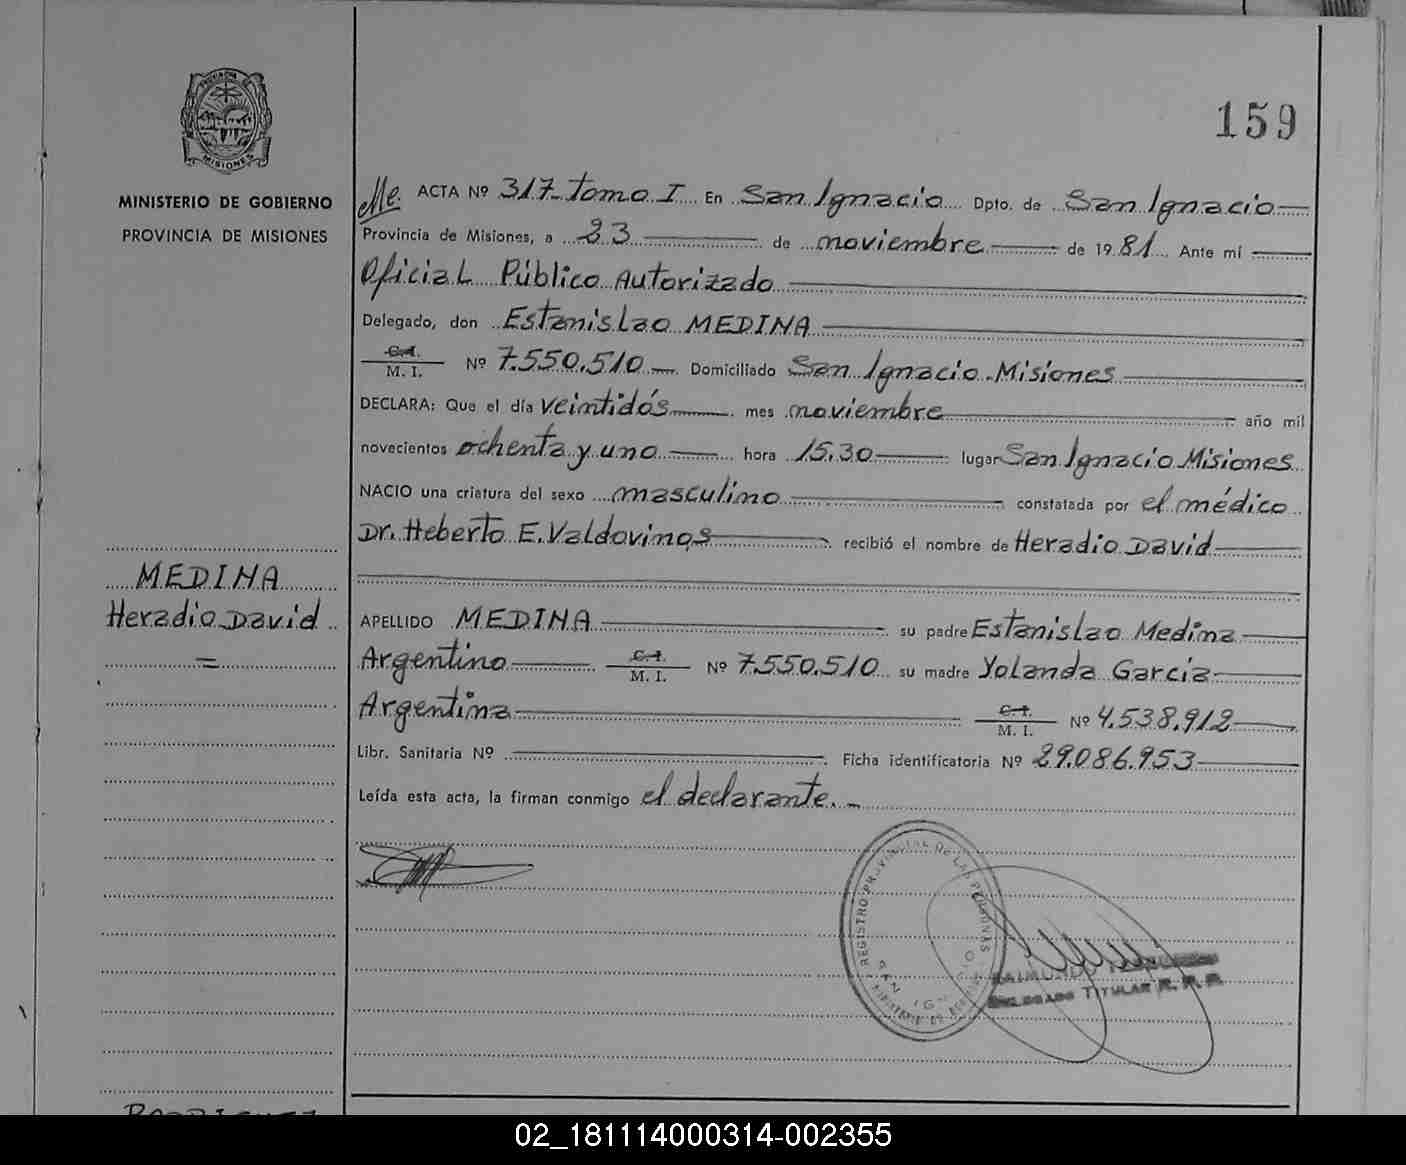 PROVINCIA DE
MISIONES
MINISTERIO DE GOBIERNO
PROVINCIA DE MISIONES
159
Me. ACTA Nº 317 - Tomo I En San Ignacio Dpto. de San Ignacio
Provincia de Misiones, a 23 de noviembre de 1981 Ante mi
Oficial Público Autorizado
Delegado, don Estanislao MEDINA
C.I. M. I. Nº 7.550.510 Domiciliado San Ignacio - Misiones
DECLARA: Que el día veintidós mes noviembre año mil
novecientos ochenta y uno hora 15.30 lugar San Ignacio Misiones
NACIO una criatura del sexo masculino constatada por el médico
Dr. Heberto E. Valdovinos recibió el nombre de Heradio David
MEDINA
Heradio David
=
APELLIDO MEDINA su padre Estanislao Medina
Argentino C.I. M. I. Nº 7.550.510 su madre Yolanda Garcia
Argentina C.I. M. I. Nº 4.538.912
Libr. Sanitaria Nº Ficha identificatoria Nº 29.086.953
Leída esta acta, la firman conmigo el declarante. -
REGISTRO PROVINCIAL DE LAS PERSONAS
SAN IGNACIO
RAIMUNDO
DELEGADO TITULAR R. P. P.
02_181114000314-002355